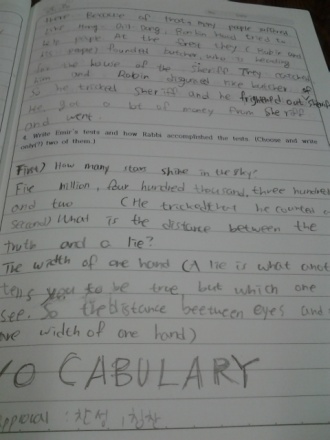 Because of that many people suffered
Robin hood tried to
help people. At the they (Robin and
his people) founded butcher, who is heading
for the house of the Sheriff They
him and Robin disguised like butcher,
So he tricked Sheriff and he frightened out
He got a lot of money from Sheriff
and went.
4. Write Emir's tests and how Rabbi accomplished the tests (Choose and write
only(?) two of them.)
First) How many stars shine in the sky?
Five million, four hundred thousand, three hundred
and two (He tricked that he counted
Second) What is the distance between the
truth and a lie?
The width of one hand (A lie is what
tells you to be true, but which one
see. So the distance beetween eyes and
are width of one hand)
VOCABULARY
: 찬성, 칭찬